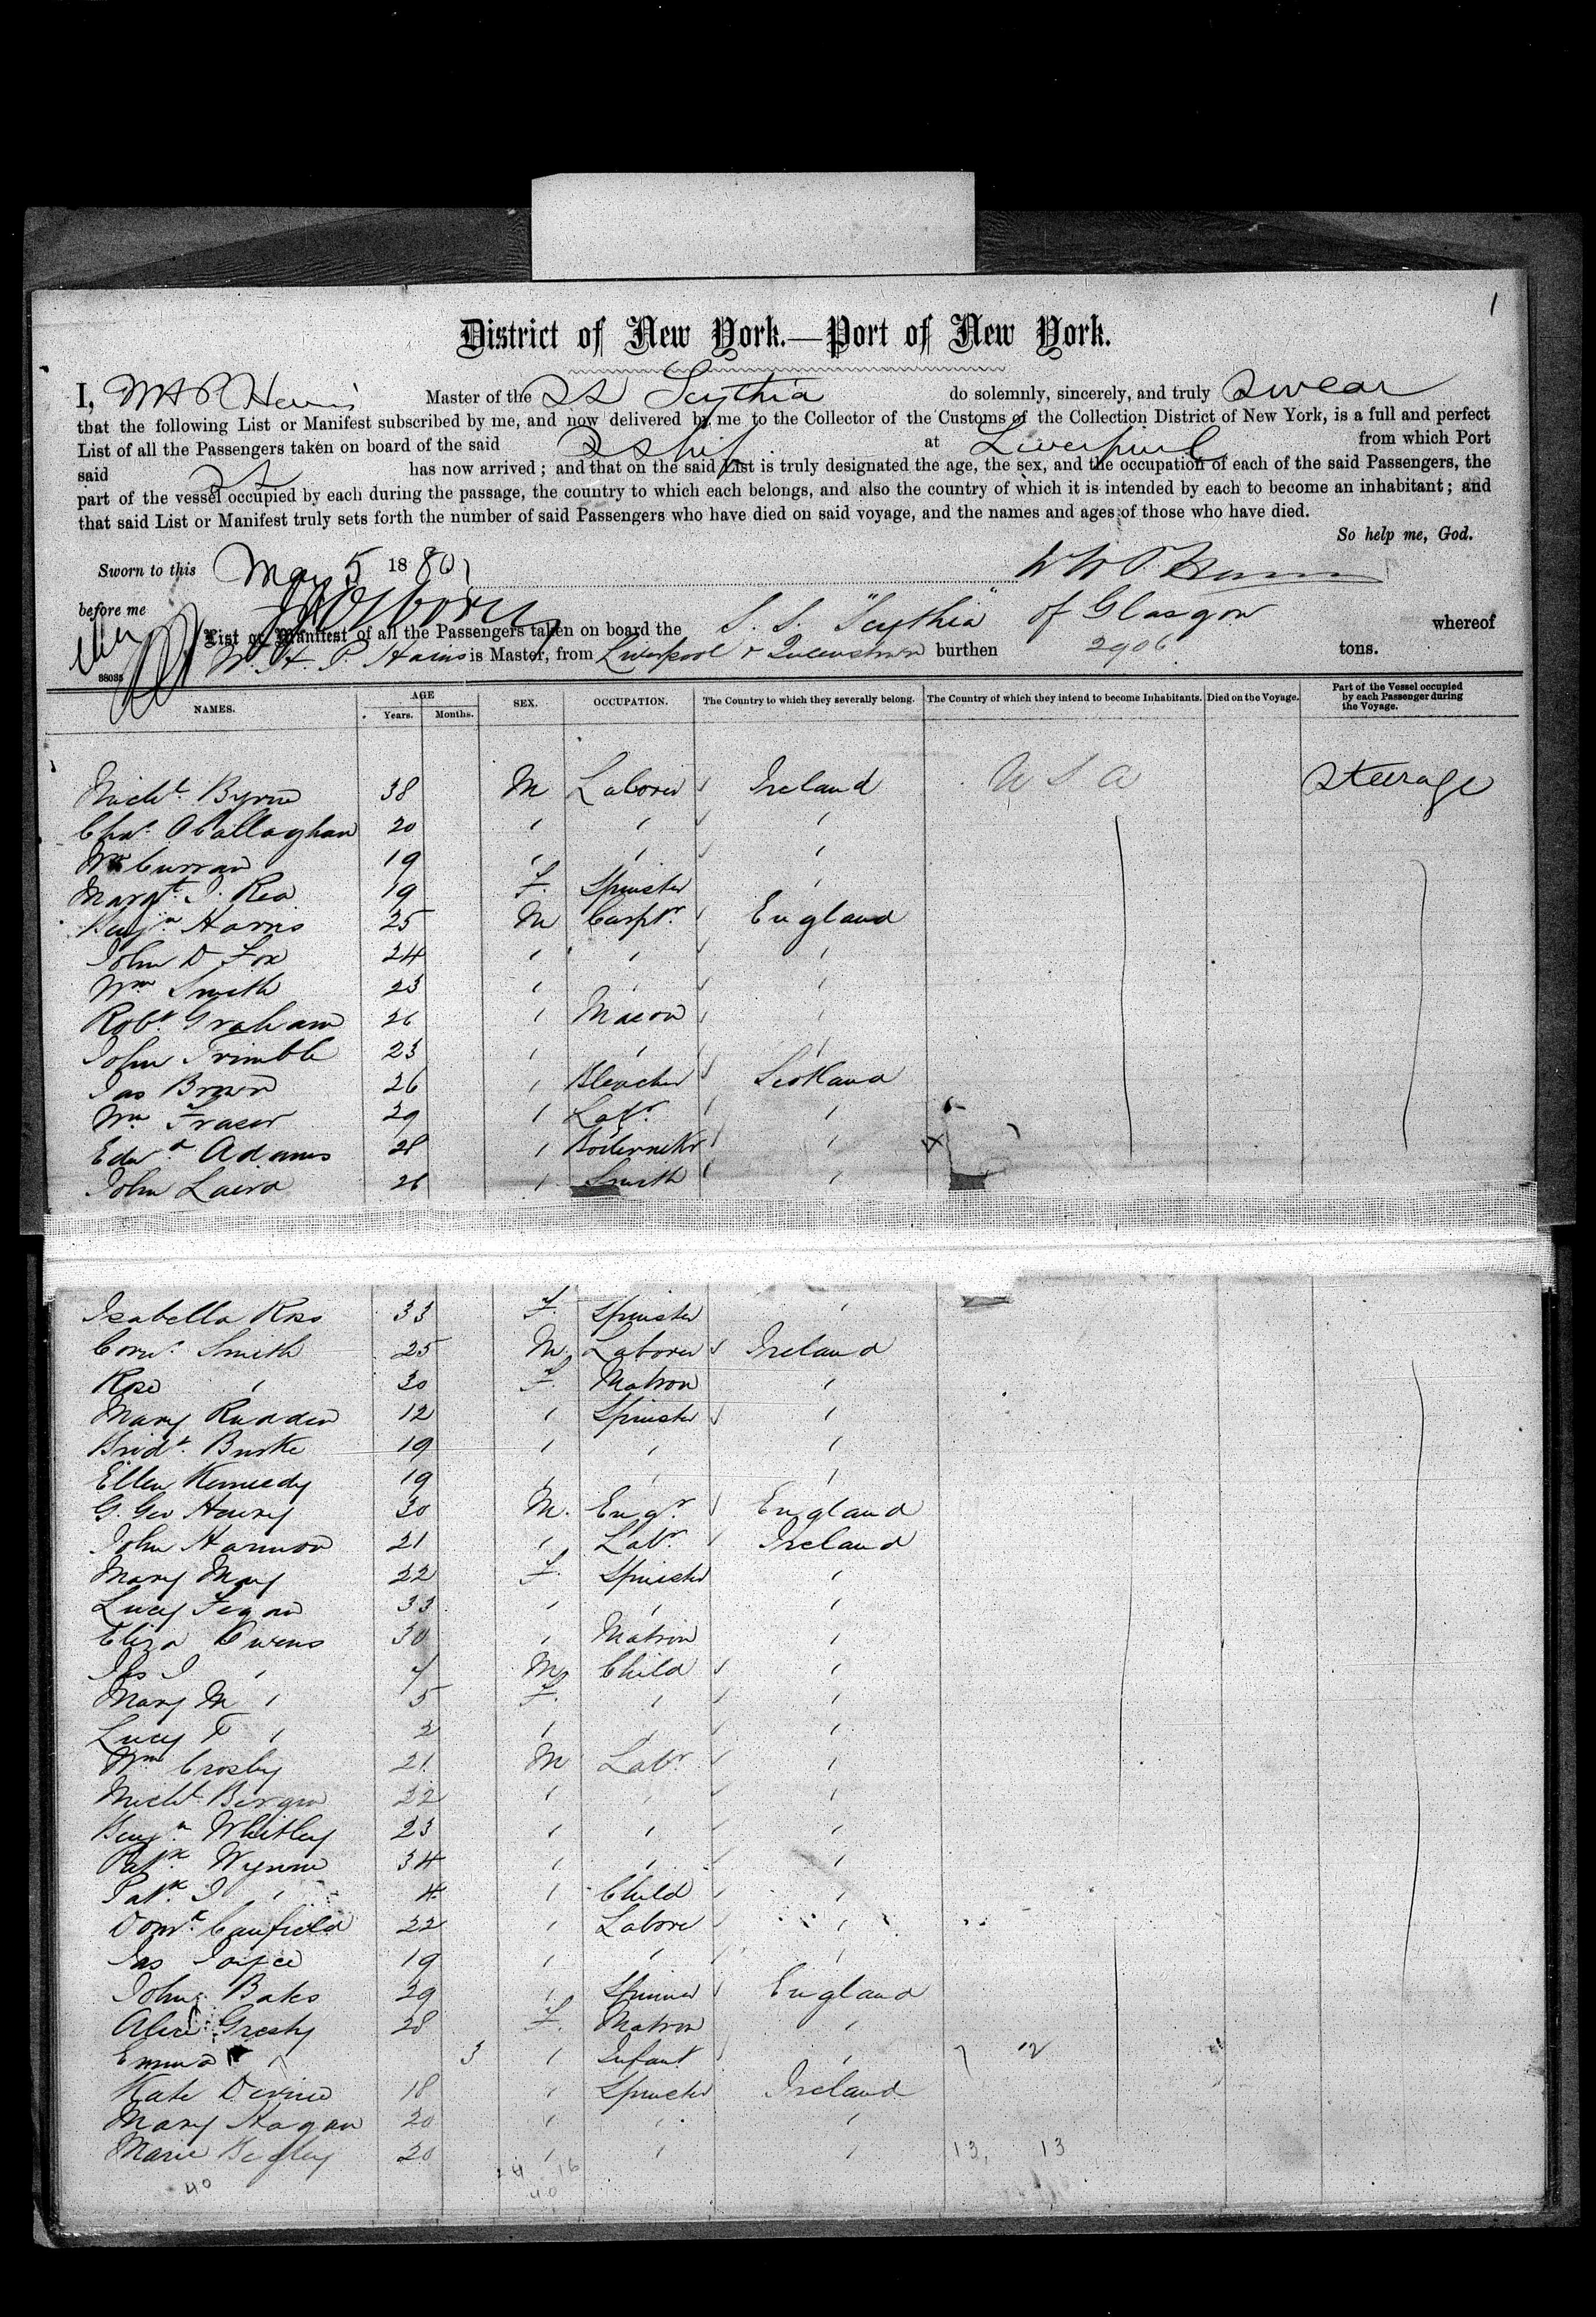 1
District of New York.—Port of New York.
I, Master of the SS Scythia do solemnly, sincerely, and truly swear
that the following List or Manifest subscribed by me, and now delivered by me to the Collector of the Customs of the Collection District of New York, is a full and perfect
List of all the Passengers taken on board of the said SShip at Liverpool from which Port
said SS has now arrived; and that on the said List is truly designated the age, the sex, and the occupation of each of the said Passengers, the
part of the vessel occupied by each during the passage, the country to which each belongs, and also the country of which it is intended by each to become an inhabitant; and
that said List or Manifest truly sets forth the number of said Passengers who have died on said voyage, and the names and ages of those who have died.
So help me, God.
Sworn to this May 5 1880
before me
List or Manifest of all the Passengers taken on board the S. S. "Scythia" of Glasgow whereof
W. H. P. Hains is Master, from Liverpool & Queenstown burthen 2906 tons.
38035
NAMES. AGE Years. Months. SEX. OCCUPATION. The Country to which they severally belong. The Country of which they intend to become Inhabitants. Died on the Voyage. Part of the Vessel occupied by each Passenger during the Voyage.
Michl. Byrne 38 M Laborer Ireland U S A Steerage
Chas. OCallaghan 20 " " "
Wm Curran 19 " " "
Margt. J. Rea 19 F. Spinster "
Benjn Harris 25 M Carptr England
John D Fox 24 " " "
Wm Smith 23 " " "
Robt Graham 26 " Mason "
John Trimble 23 " " "
Jas Brown 26 " Bleacher Scotland
Wm Fraser 29 " Labr. "
Edwd Adams 28 " Boilermkr "
John Laird 26 " Smith "
Isabella Ross 33 F. Spinster "
Corns. Smith 25 M. Laborer Ireland
Rose " 30 F. Matron "
Mary Rudden 12 " Spinster "
Bridt. Burke 19 " " "
Ellen Kennedy 19 " " "
G. Geo Henry 30 M. Engr. England
John Hannon 21 " Labr. Ireland
Mary May 22 F. Spinster "
Lucy Fegan 33 " " "
Eliza Owens 30 " Matron "
J " 7 M Child "
Mary M " 5 F. " "
Lucy F " 2 " " "
Wm Crosby 21 M Labr "
Michl. Bergin 22 " " "
Benjn. Whitley 23 " " "
Patk. Wynne 34 " " "
Patk. J " 4 " Child "
Domk Caufield 22 " Laborer "
Jas Joyce 19 " " "
John Bates 29 " Spinner England
Alice Gresty 28 F. Matron "
Emma " 3 " Infant "
Kate Devine 18 " Spinster Ireland
Mary Hagan 20 " " "
Marie Begley 20 " " " 13. 13
40 24 16
40